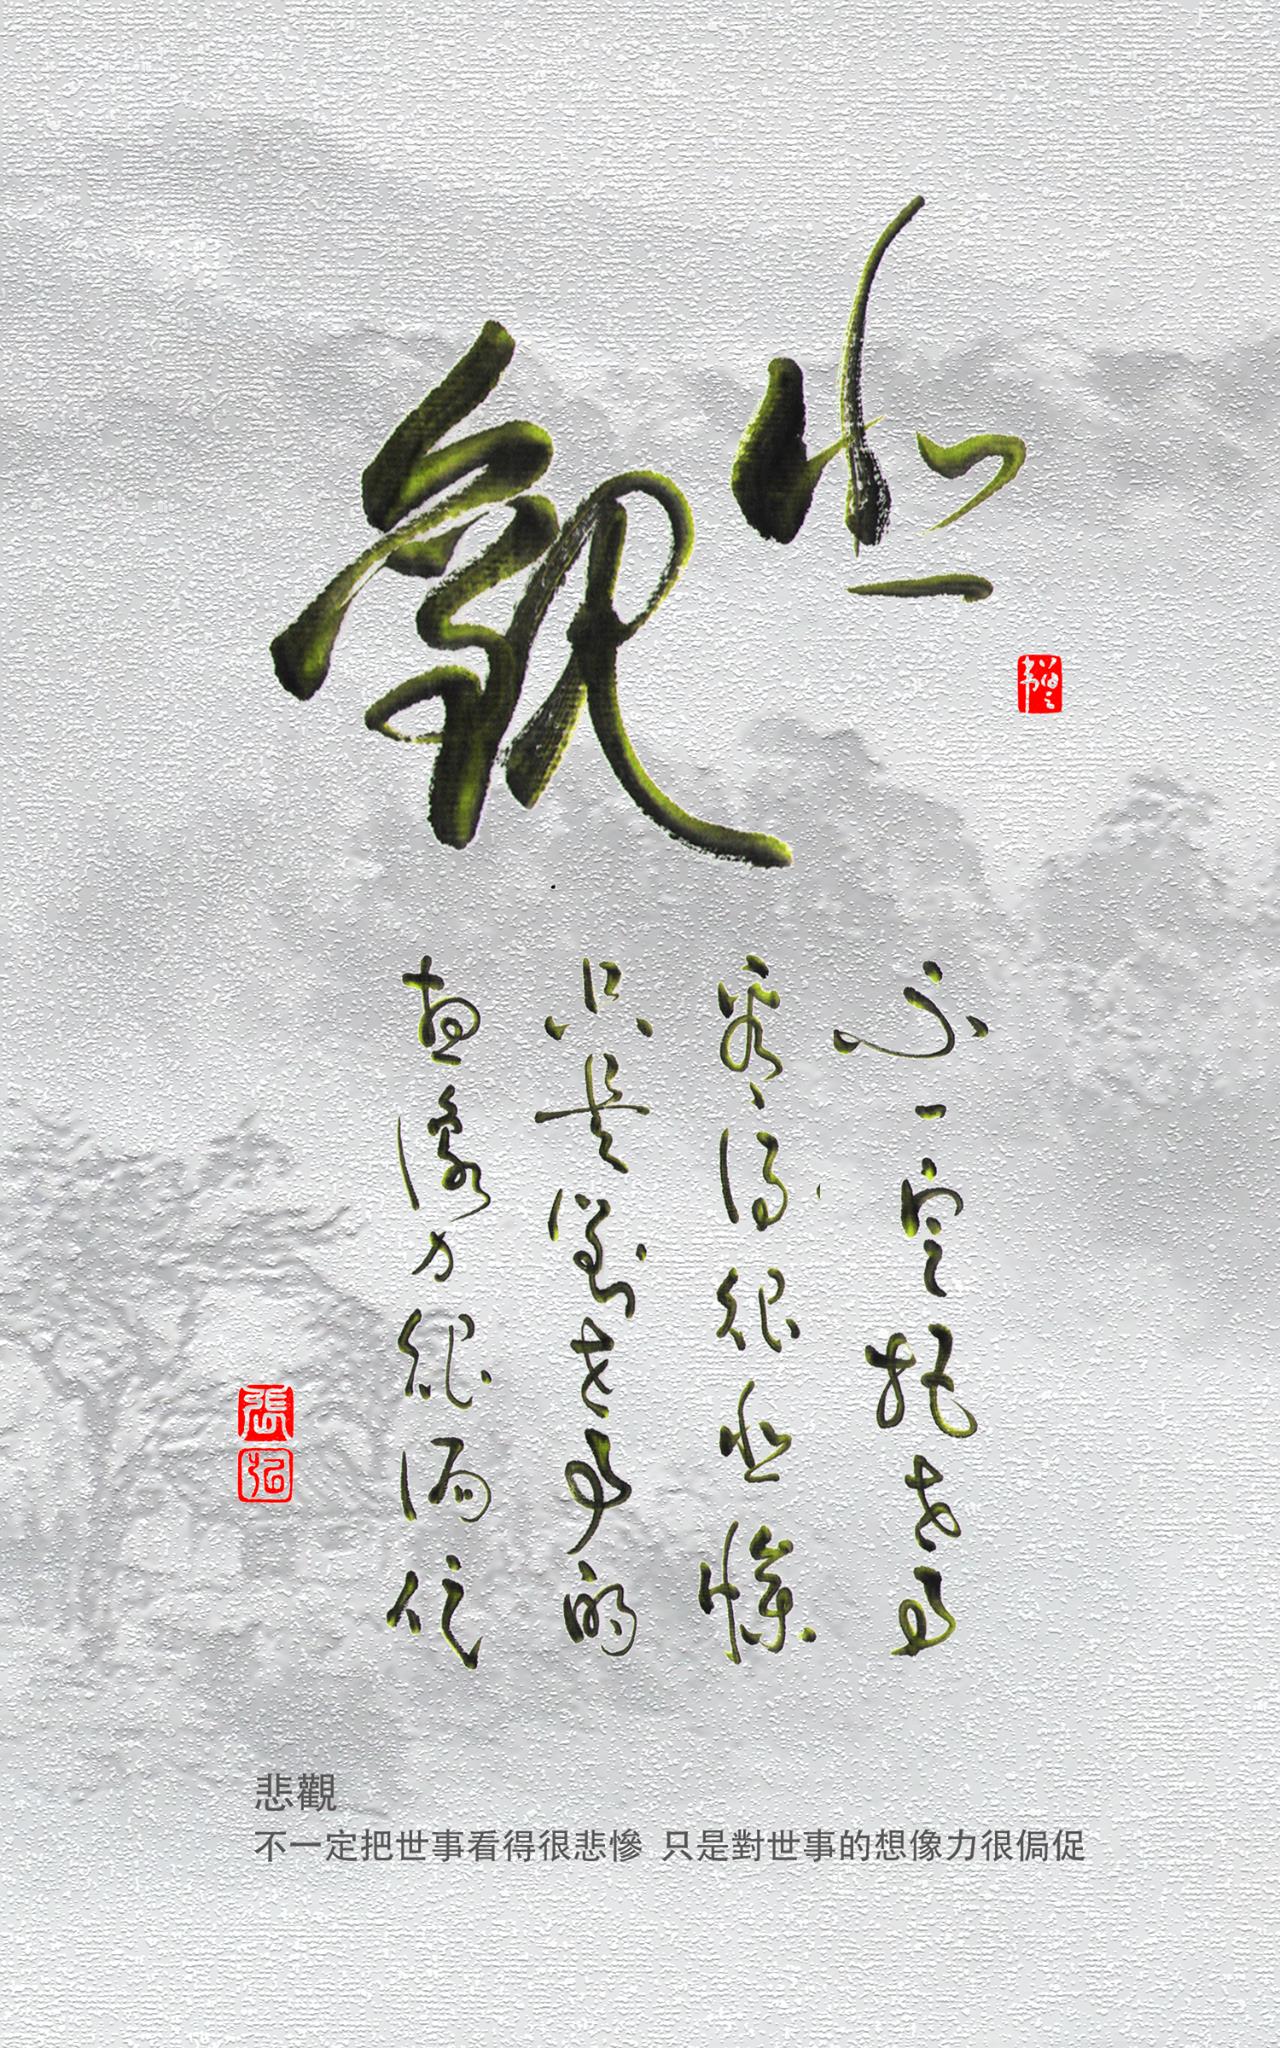 悲觀
不一定把世事
看得很悲慘
只是對世事的
想像力很侷促
張
悲觀
不一定把世事看得很悲慘 只是對世事的想像力很侷促